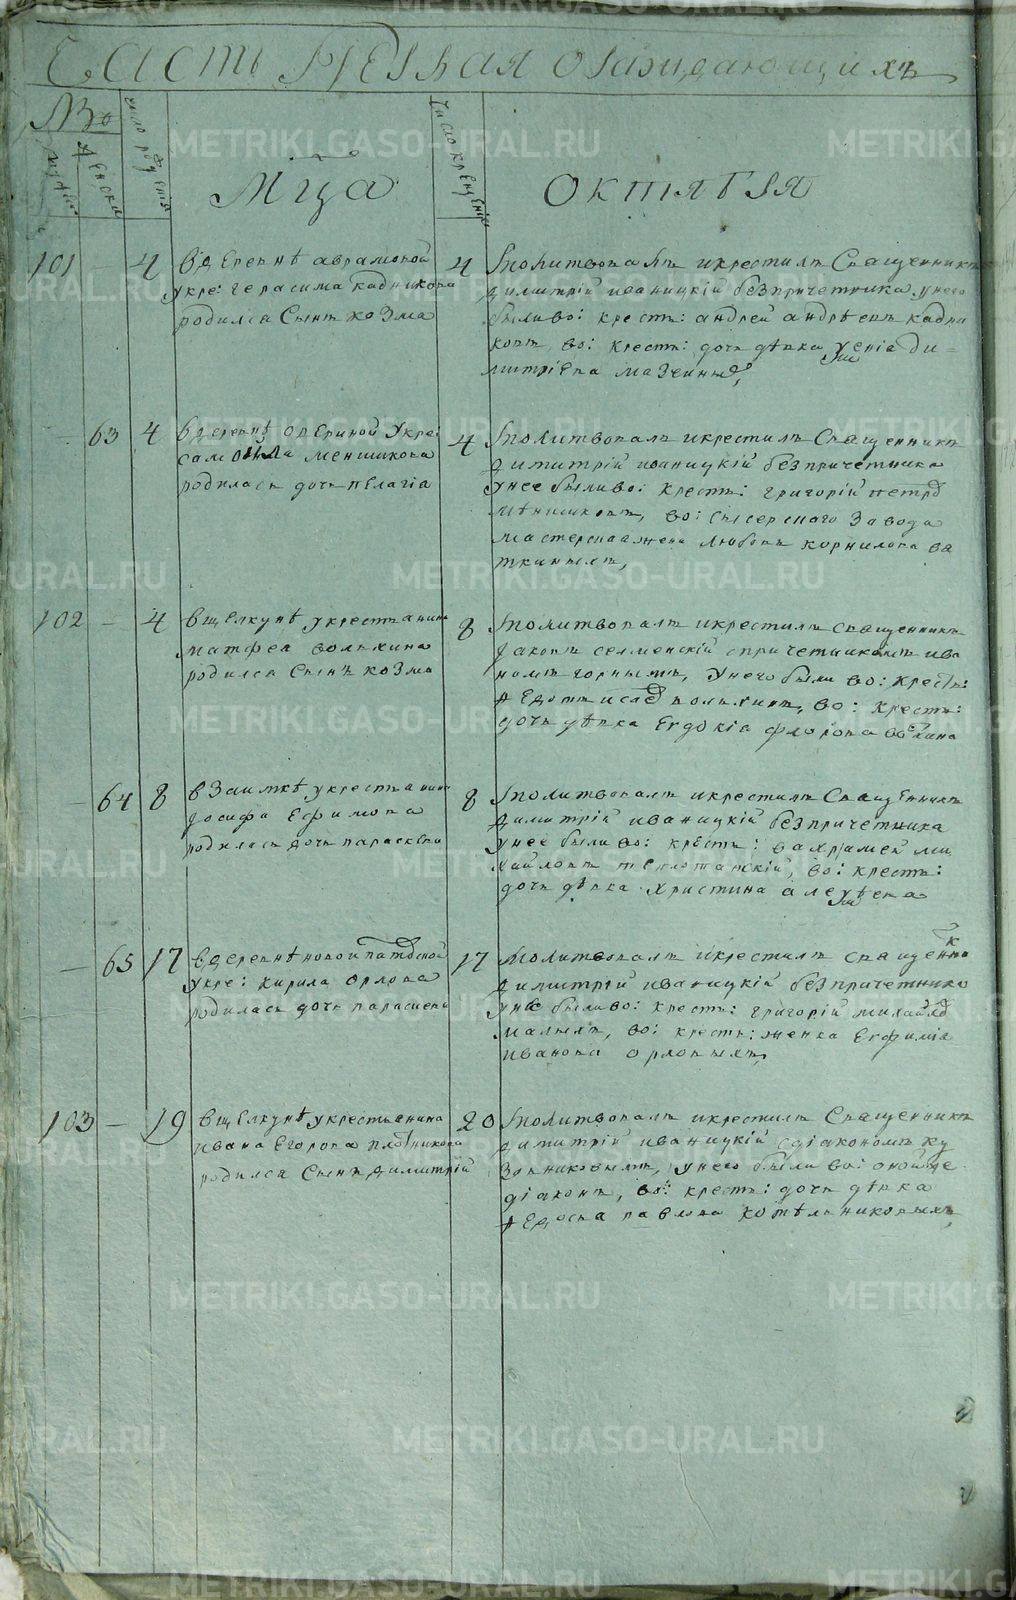 Часть первая о раждающихъ
№
мужеска
женска
число рожденія
Мца
число крещенія
октября
101 — 4 в деревнѣ аврамовой
укре: герасима кадникова
родился сынъ козма
4 молитвовалъ и крестилъ священникъ
димитрій иваницкій без причетника, у него
были во: крест: андрей андрѣевъ кадни
ковъ, во: крест: дочь дѣвка ди
митріева
63 4 в деревнѣ одериной укре:
меншикова
родилась дочь пелагіа
4 молитвовалъ и крестилъ священникъ
димитрій иваницкій без причетника
у нее были во: крест: григорій петро
мѣншиковъ, во: сысерского завода
мастерскаа жена любовь корнилова ва
ткиныхъ,
102 — 4 в щелкунѣ у крестьянина
матфеа волхина
родился сынъ козма
8 молитвовалъ и крестилъ священникъ
іаковъ селменскій с причетникомъ ива
номъ горнымъ, у него были во: крест:
федотъ во: крест:
дочь дѣвка евдокіа флорова
— 64 8 в заимкѣ у крестьянина
іосифа ефимова
родилась дочь параскева
8 молитвовалъ и крестилъ священникъ
димитрій иваницкій без причетника
у нее были во: крест: вахрамей ми
хайловъ во: крест:
дочь дѣвка христина алеѯѣева
— 65 17 в деревнѣ новоипатовской
укре: кирила орлова
родилась дочь парасковѣ
17 молитвовалъ и крестилъ священникъ
димитрій иваницкій без причетника
у нее были во: крест: григорій михайло
малыхъ, во: крест: женка евфиміа
иванова орловыхъ,
103 — 19 в щелкунѣ у крестьянина
ивана егорова плотникова
родился сынъ димитрій
20 молитвовалъ и крестилъ священникъ
димитрій иваницкій с діакономъ ку
зовниковымъ, у него были во: оной же
діаконъ, во: крест: дочь дѣвка
федосьа павлова котѣлниковыхъ,
METRIKI.GASO-URAL.RU